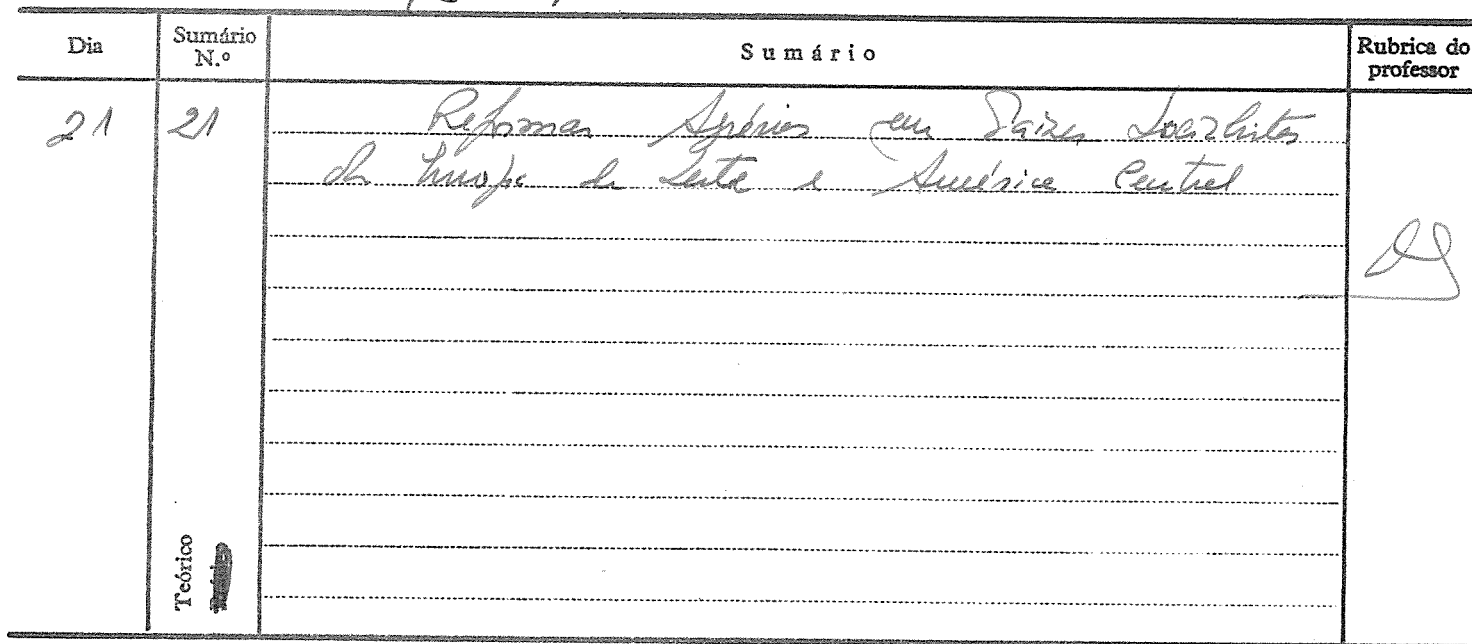 Dia Sumário N.º Sumário Rubrica do professor
21 21 Reformas Agrárias em Países Socialistas
da Europa de Leste e América Central
Teórico